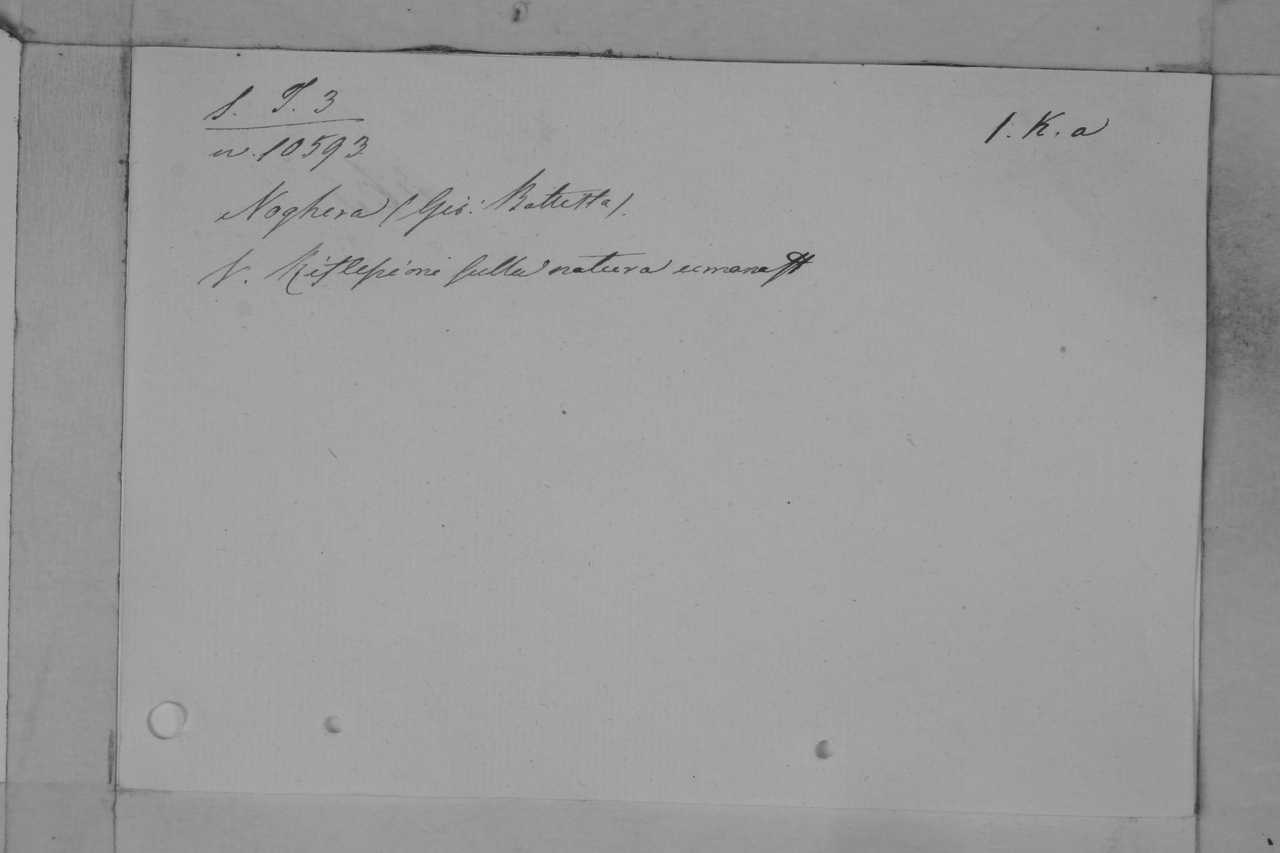 S. T. 3
n. 10593
1. K. a
Noghera (Gio: Battista).
V. Riflessioni sulla natura umana